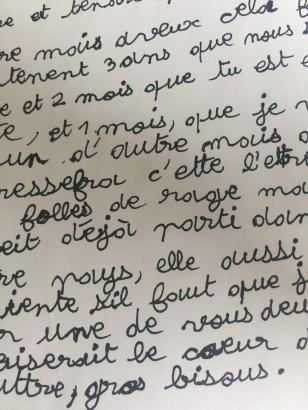 e et
re mois aveux cela
tenent 3 ans que nous s
e et 2 mois que tu est e
te, et 1 mois, que je n
un d'autre mais
ressefra c'ette l'ett
folles de rage mo
eit dejà parti dan
re pays, elle aussi
iente s'il faut que j
r une de vous deu
aiserait le cœur d
uttre, gros bisous.